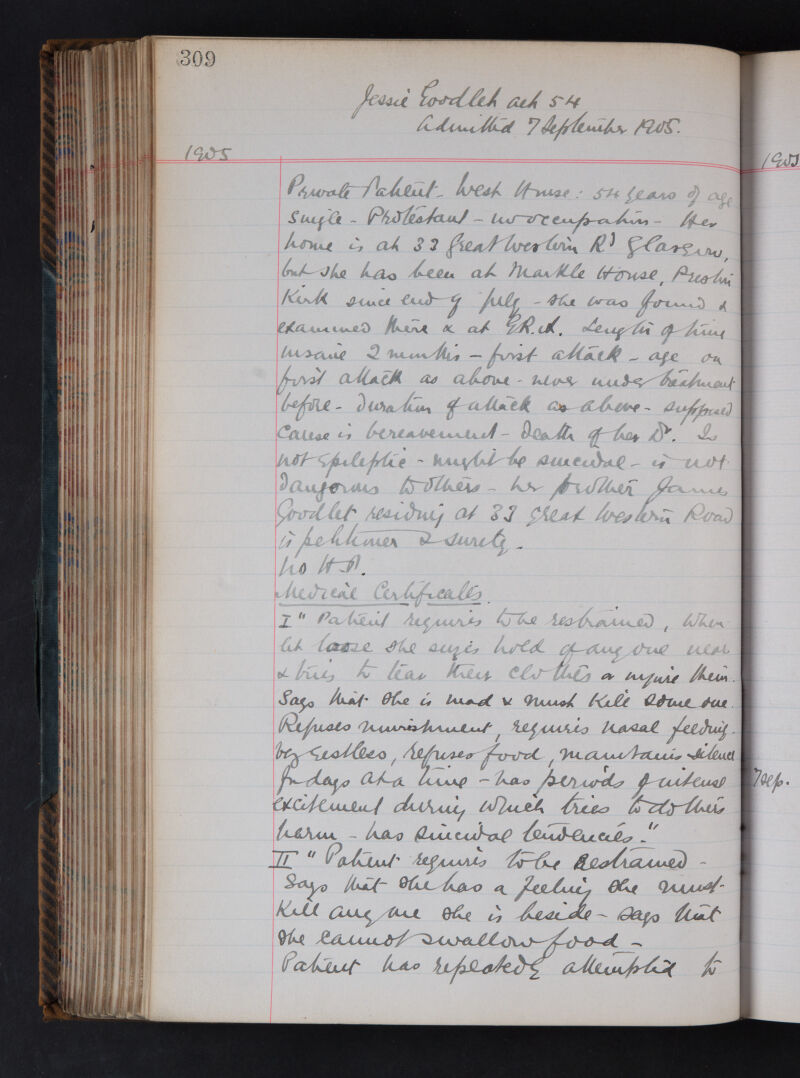 309
Jessie Goodlet aet 54
Admitted 7 September 1905.
1905
1905
Private Patient - West House: 54 years of age
Single - Protestant - no occupation - Her
home is at 33 Great Western Rd Glasgow,
but she has been at Markle House, Preston
Kirk since end of July - she was found &
examined there & at E.R.A. Length of time
insane 2 months - first attack - age on
first attack as above - never under treatment
before - Duration of attack as above - supposed
cause is bereavement - Death of her Sr. Is
not Epileptic - might be suicidal - is not
dangerous to others - her brother James
Goodlet residing at 33 Great Western Road
is petitioner & surety.
No H.P.
Medical Certificates.
I " Patient requires to be restrained, when
let loose she seizes hold of any one near
& tries to tear their clothes or injure them.
Says that she is mad & must kill some one.
Refuses nourishment, requires nasal feeding.
very restless, refuses food, maintains silence
for days at a time - has periods of intense
7 Sep.
excitement during which tries to do others
harm - has suicidal tendencies."
II " Patient requires to be restrained -
Says that she has a feeling she must
Kill any one she is beside - says that
she cannot swallow food -
Patient has repeatedly attempted to